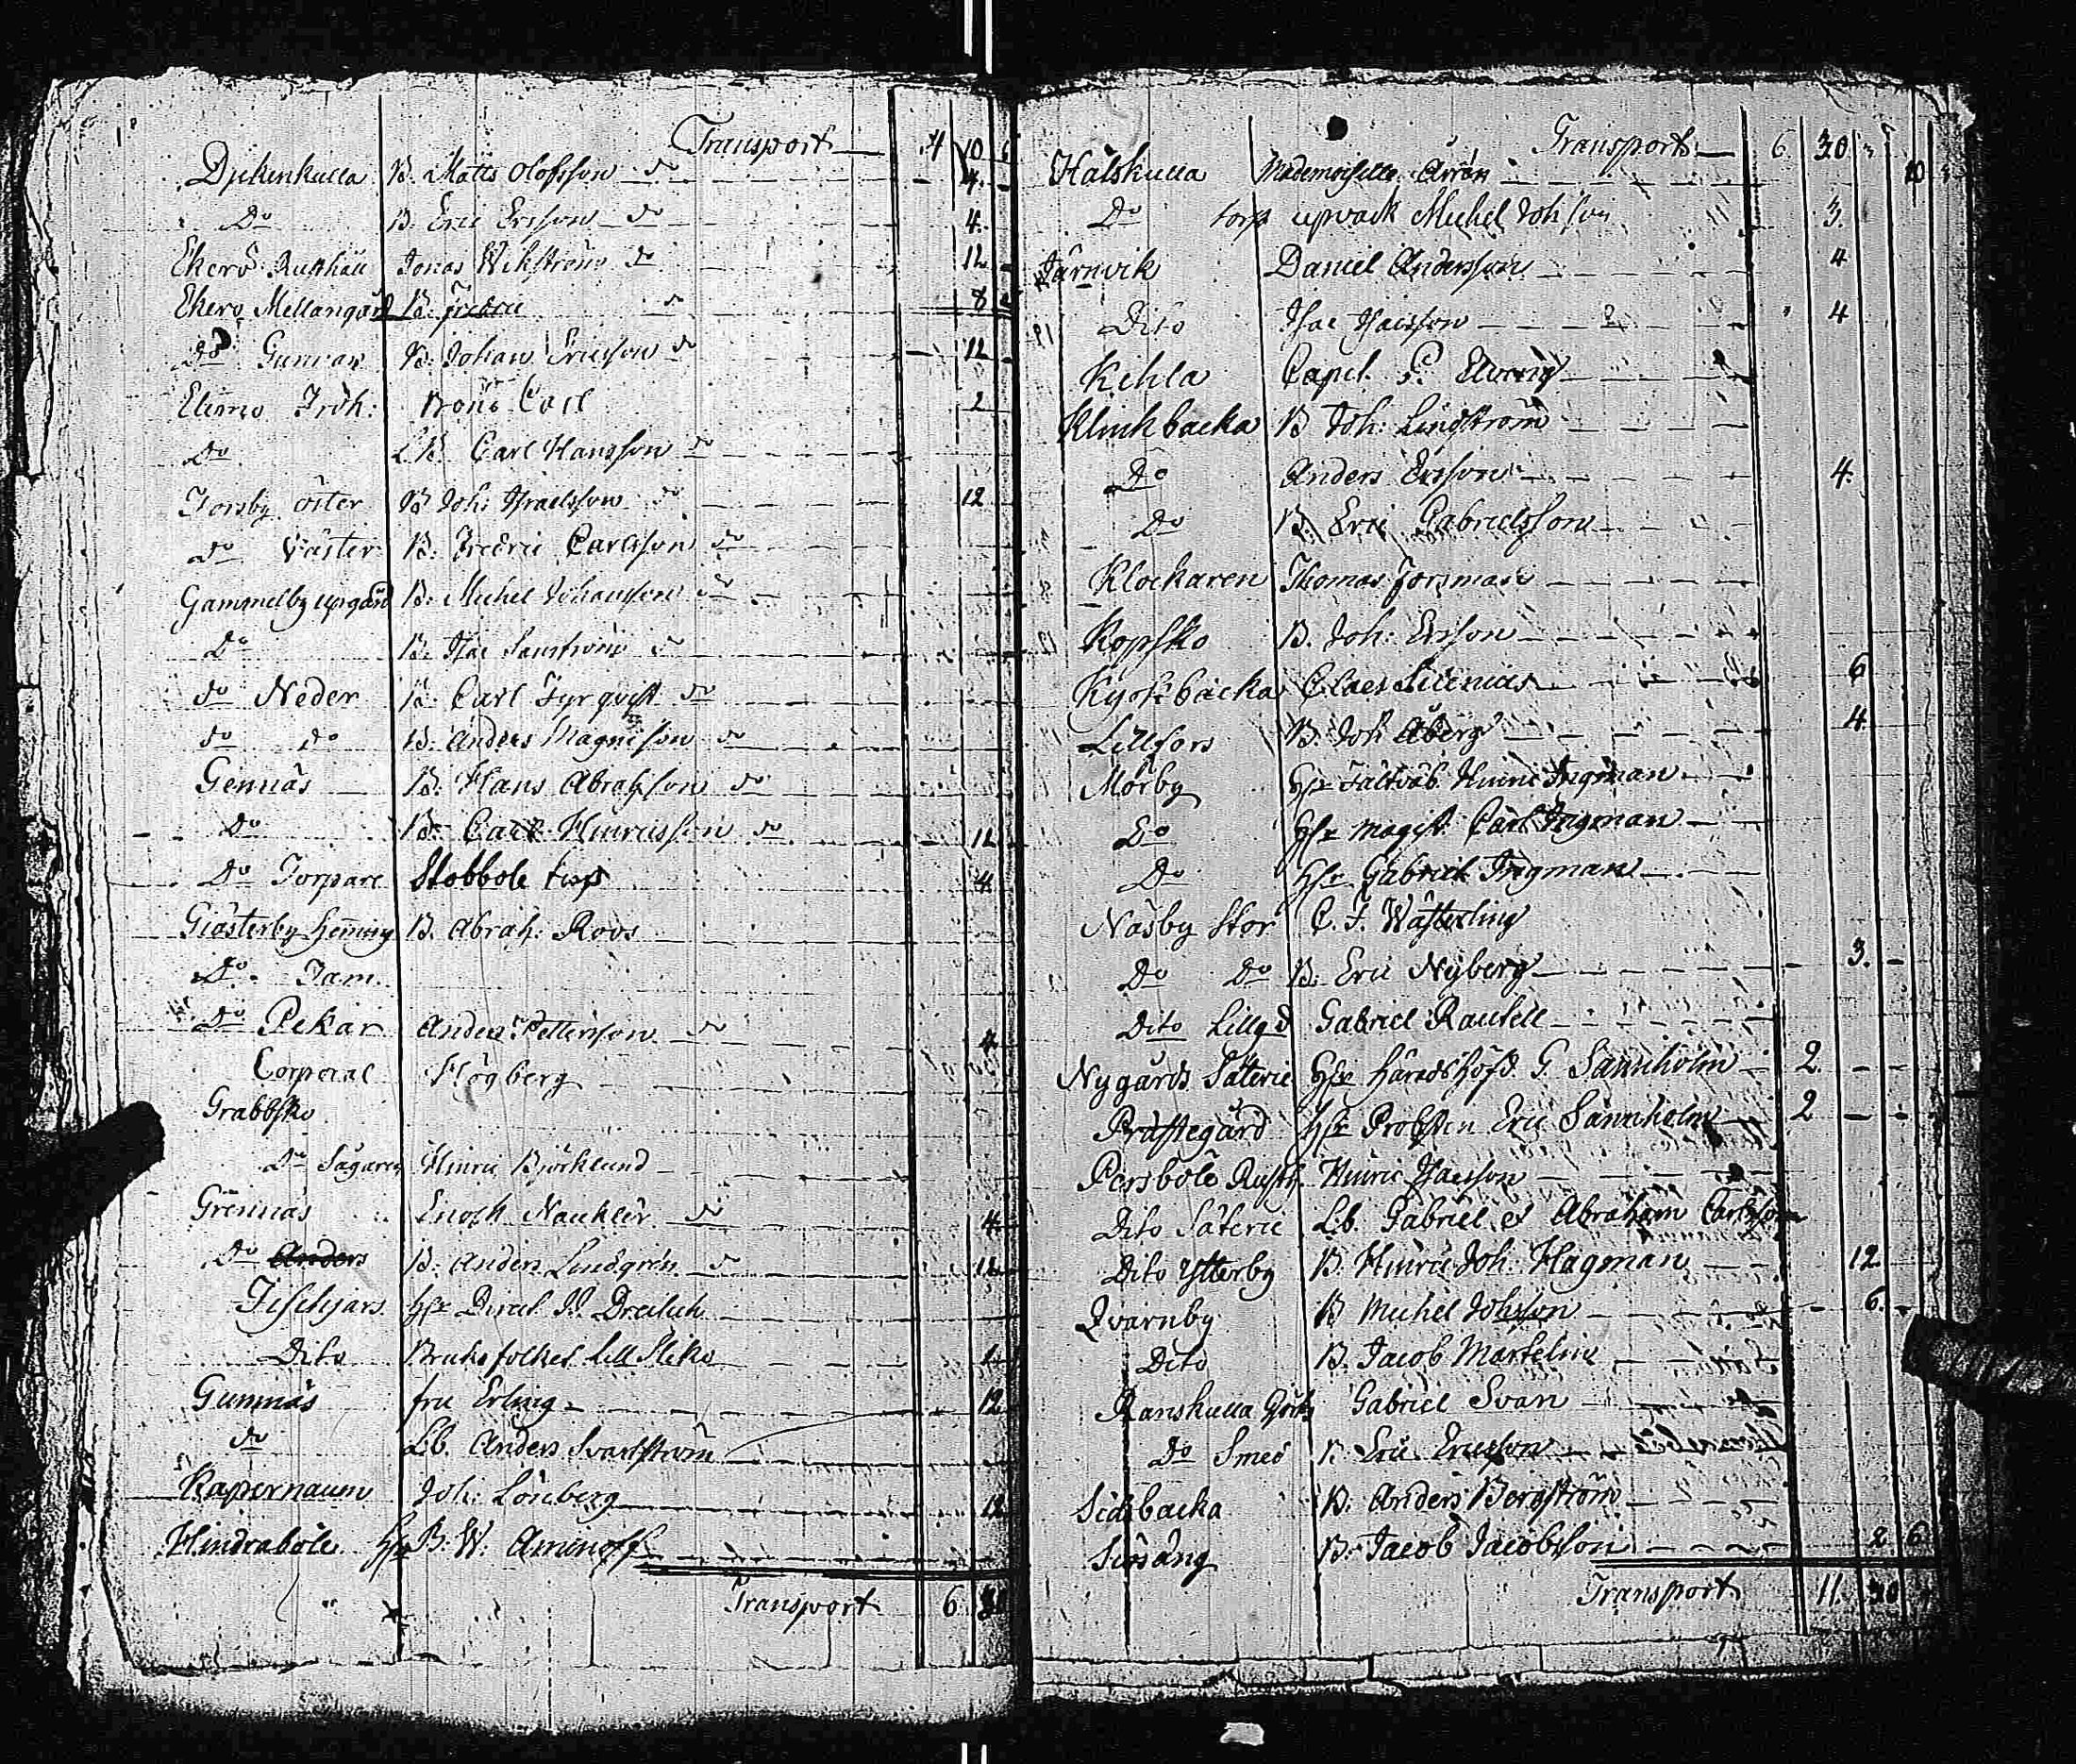 Transport 4 10 6
Djekenkulla B. Matts Olofsson do 4
Do B. Eric Ersson do 4
Ekerö Rusthåll Jonas Wikström do 12
Ekerö Mellangård B. Fredric do 8
Do Gunnar B. Johan Ericsson do 12
Elimo Fröh: Bonö Carl 2
Do L.B. Carl Hansson do
Forsby öster B Joh: Israelsson do 12
do Väster B. Fredric Carlsson do
Gammelby upgård B. Michel Johansson do
Do B. Isac do
do Neder B. Carl Fyrqvist do
do do B. Anders Magnisson do
Gennäs B. Hans Abrahsson do
Do B. Carl Hinricsson do 12
Do Torpare Stobbole torp 4
Giästerby Henning B. Abrah: Roos
Do Jam
Do Pekar Anders Pettersson do 4
Corporal Högberg
Grabbsko
Do Sågaren Hinric Björklund
Grennäs Enoch Naukler do 4
Do Anders B. Anders Lindgrén do 12
Fischjars Hr Direct. Dreilick
Dito Bruksfolket Lill 1
Gunnäs fru Erling 12
do Lb. Anders Svartström
Kapernaum Joh: Lönberg 12
Hindraböle Hr B. W. Aminoff
Transport 6
Transport 6 30
Hälskulla Mademoiselle Arrén 10
Do torp upvack Michel Johsson 3
Järnvik Daniel Andersson 4
Dito Isac Isacsson 4
Kihla Capel. Elvring
Klinkbacka B Joh: Lindström
Do Anders Ersson 4
Do B. Eric Gabrielsson
Klockaren Thomas Forsman
Kopsko B. Joh: Ersson
Kyrkbacka Claes Silenius 6
Lillfors B. Joh Åberg 4
Mörby Hr Fältväb. Hinric Ingman
Do Hr Magist. Carl Ingman
Do Hr Gabriel Ingman
Näsby Stor C. F. Wästerling
Do Do B. Eric Nyberg 3
Dito Lillgd Gabriel Rautell
Nygårds Säterie Hr Häradshöfd. G. Sannholm 2
Prästegård Hr Probsten Eric Sannholm 2
Persböle Rusth. Hinric Isacsson
Dito Säterie Lb. Gabriel et Abraham Carlsson
Dito Ytterby B. Hinric Joh: Hagman 12
Qvarnby B Michel Johsson 6
Dito B. Jacob Martelin
Ranskulla Görts Gabriel Svan
Do Smed B. Eric Ericsson
Sidsbacka B. Anders Bergström
Siösäng B. Jacob Jacobsson 2 6
Transport 11 30